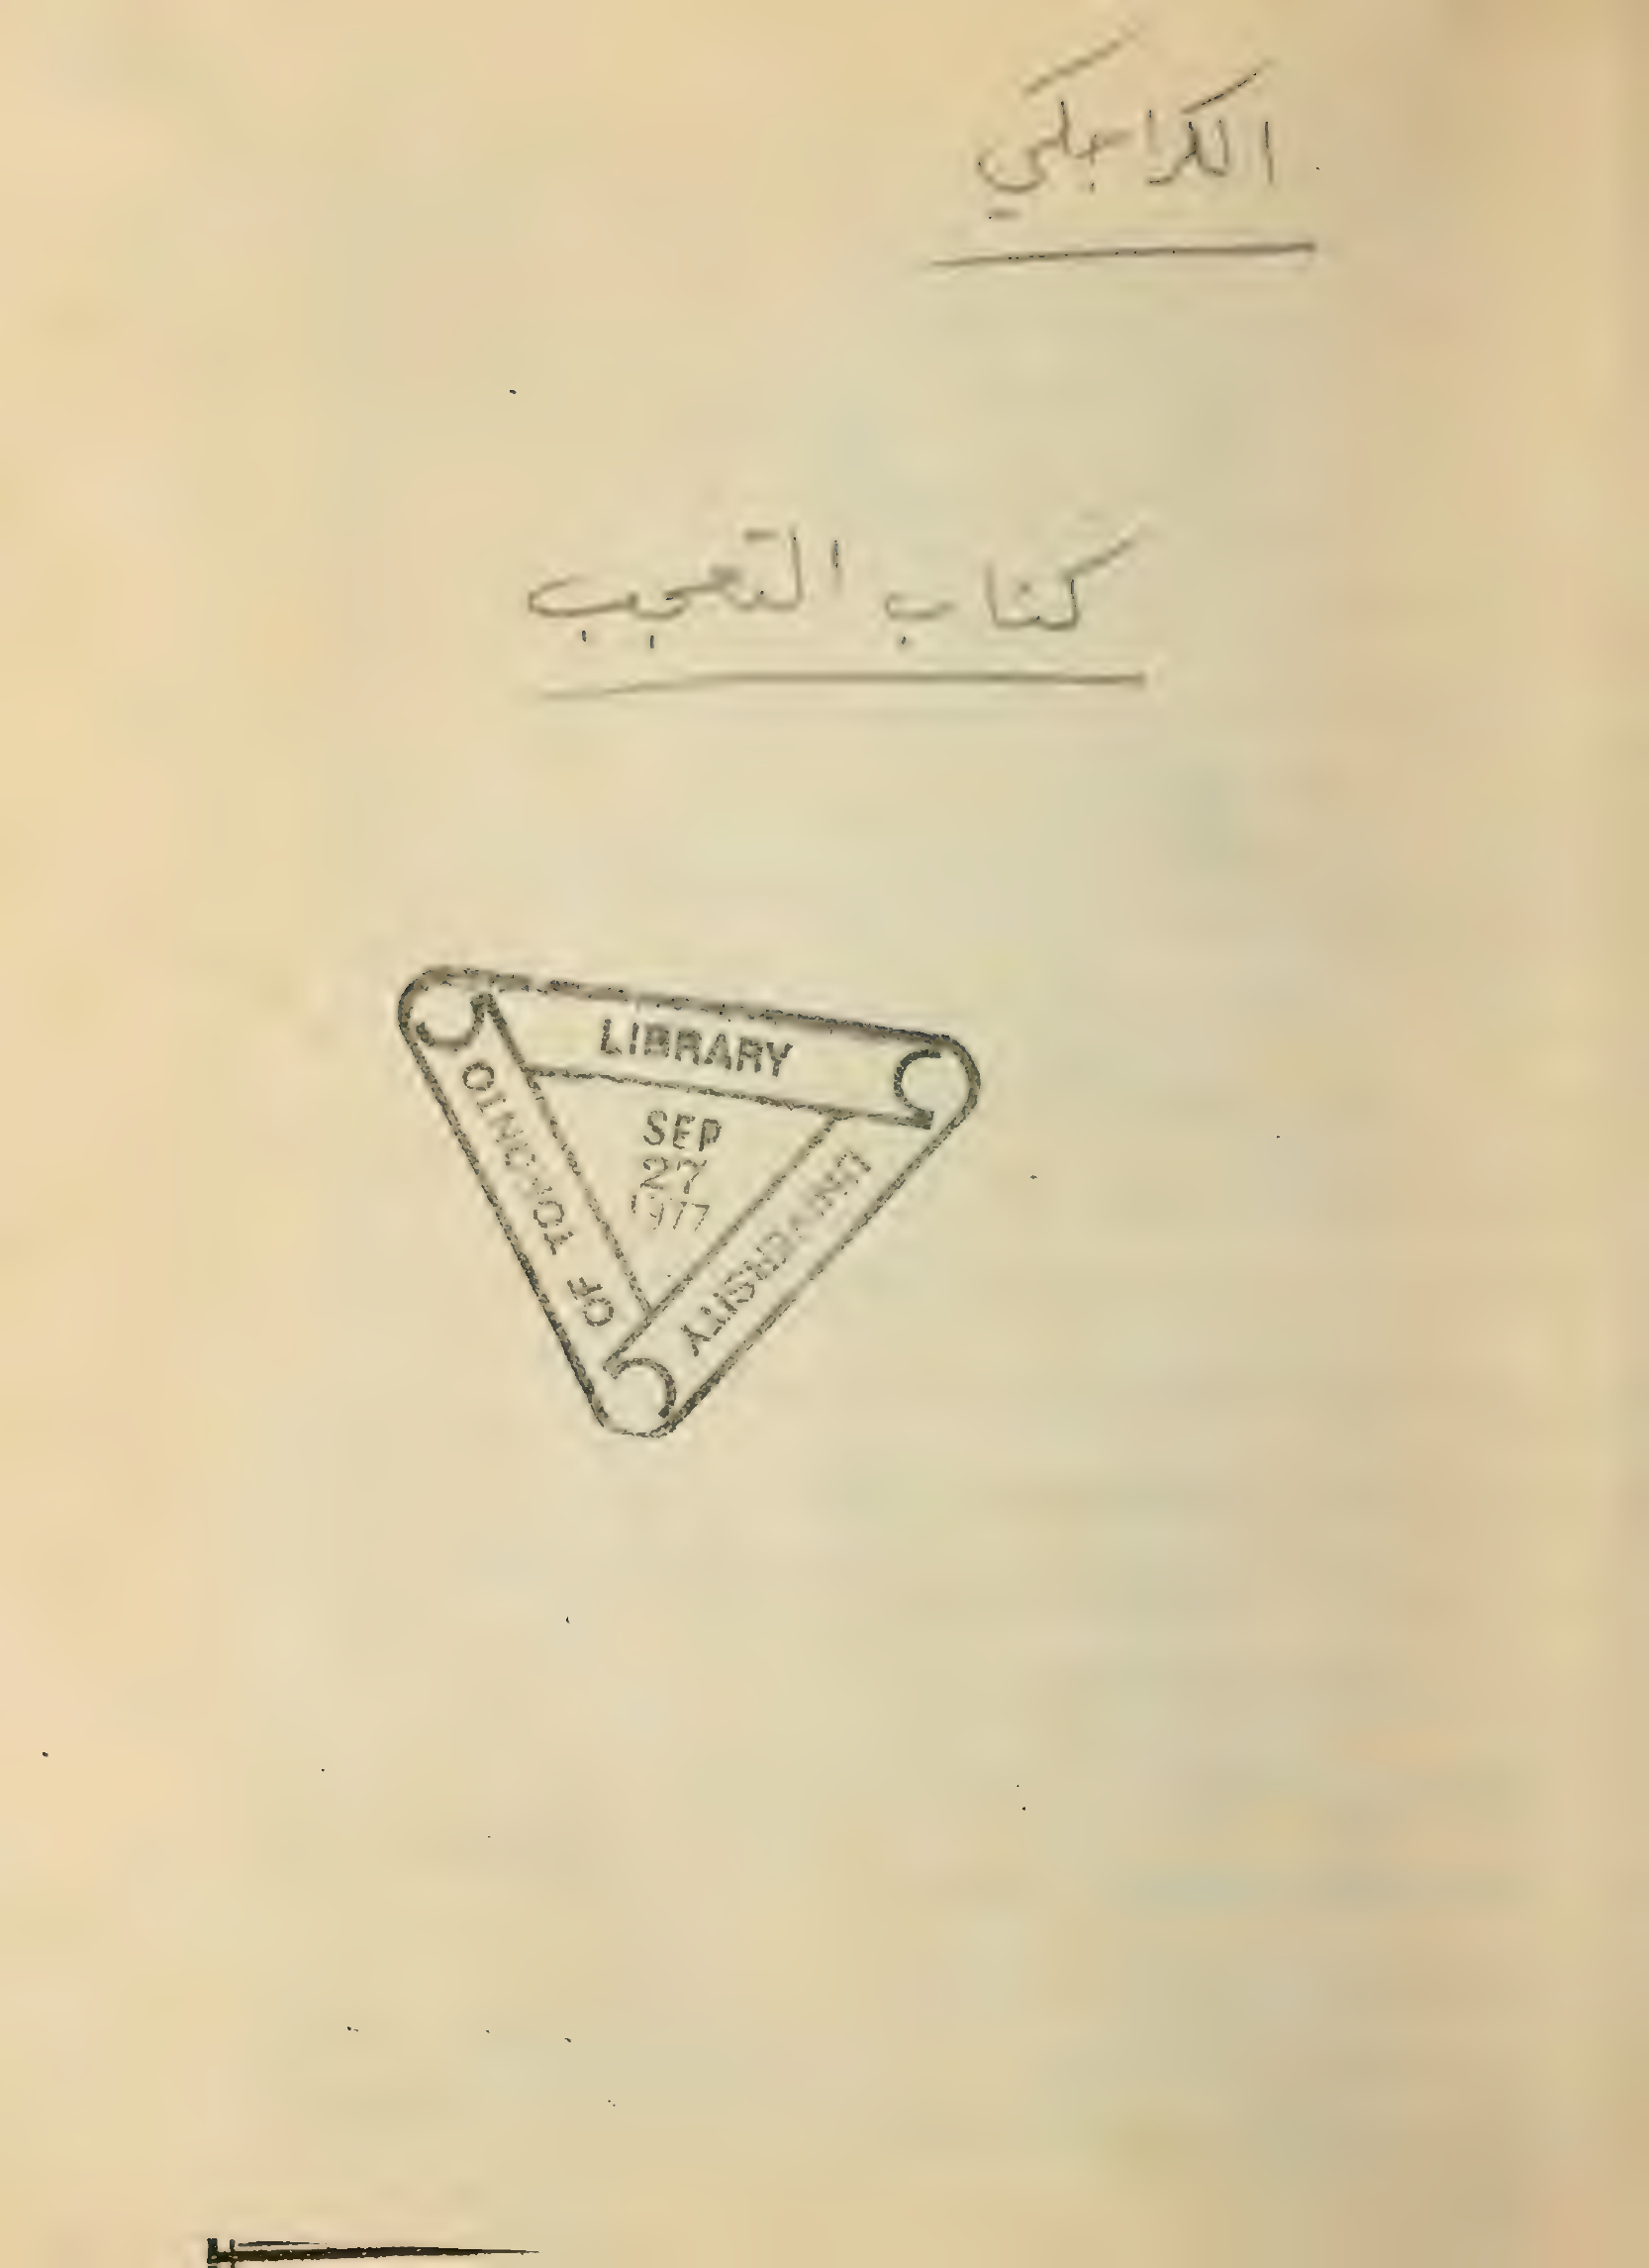 الكراجكي
كتاب التعجب
LIBRARY
SEP
27
1977
UNIVERSITY
OF TORONTO